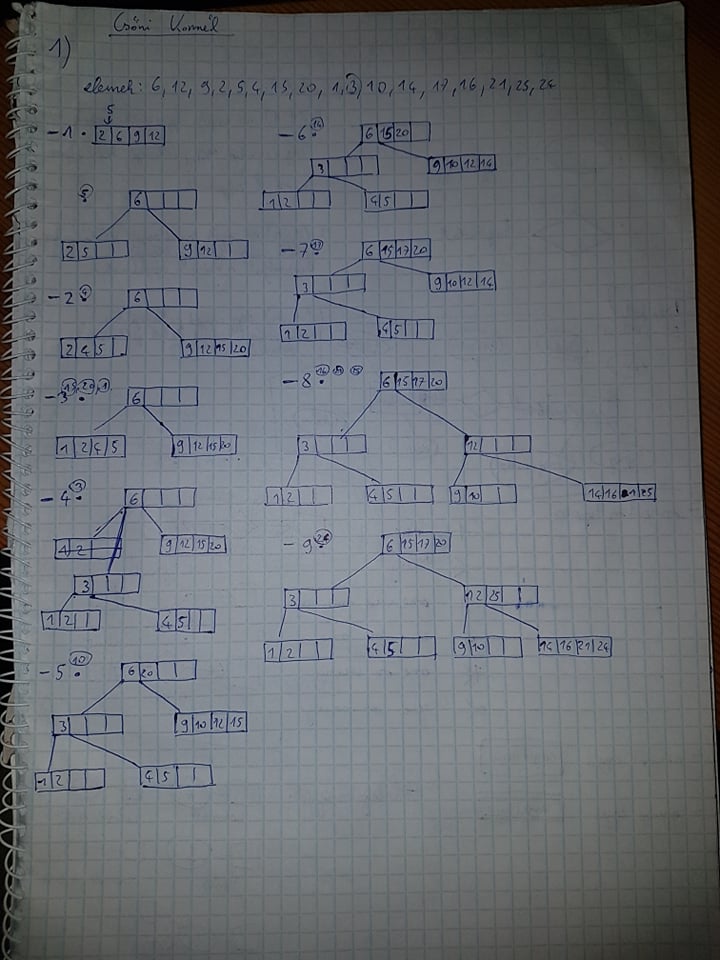 Csőni Kornél
1)
elemek: 6, 12, 9, 2, 5, 4, 15, 20, 1, 3, 10, 14, 17, 16, 21, 25, 24
5
-1. 2 6 9 12
5
6
2 5
9 12
-2. 4
6
2 4 5
9 12 15 20
-3. 15, 20, 1
6
1 2 4 5
9 12 15 20
-4. 3
6
1 2
9 12 15 20
3
1 2
4 5
-5. 10
6 20
3
9 10 12 15
1 2
4 5
-6. 14
6 15 20
3
9 10 12 14
1 2
4 5
-7. 17
6 15 17 20
3
9 10 12 14
1 2
4 5
-8. 16
6 15 17 20
3
12
1 2
4 5
9 10
14 16 21 25
-9. 24
6 15 17 20
3
12 25
1 2
4 5
9 10
14 16 21 24